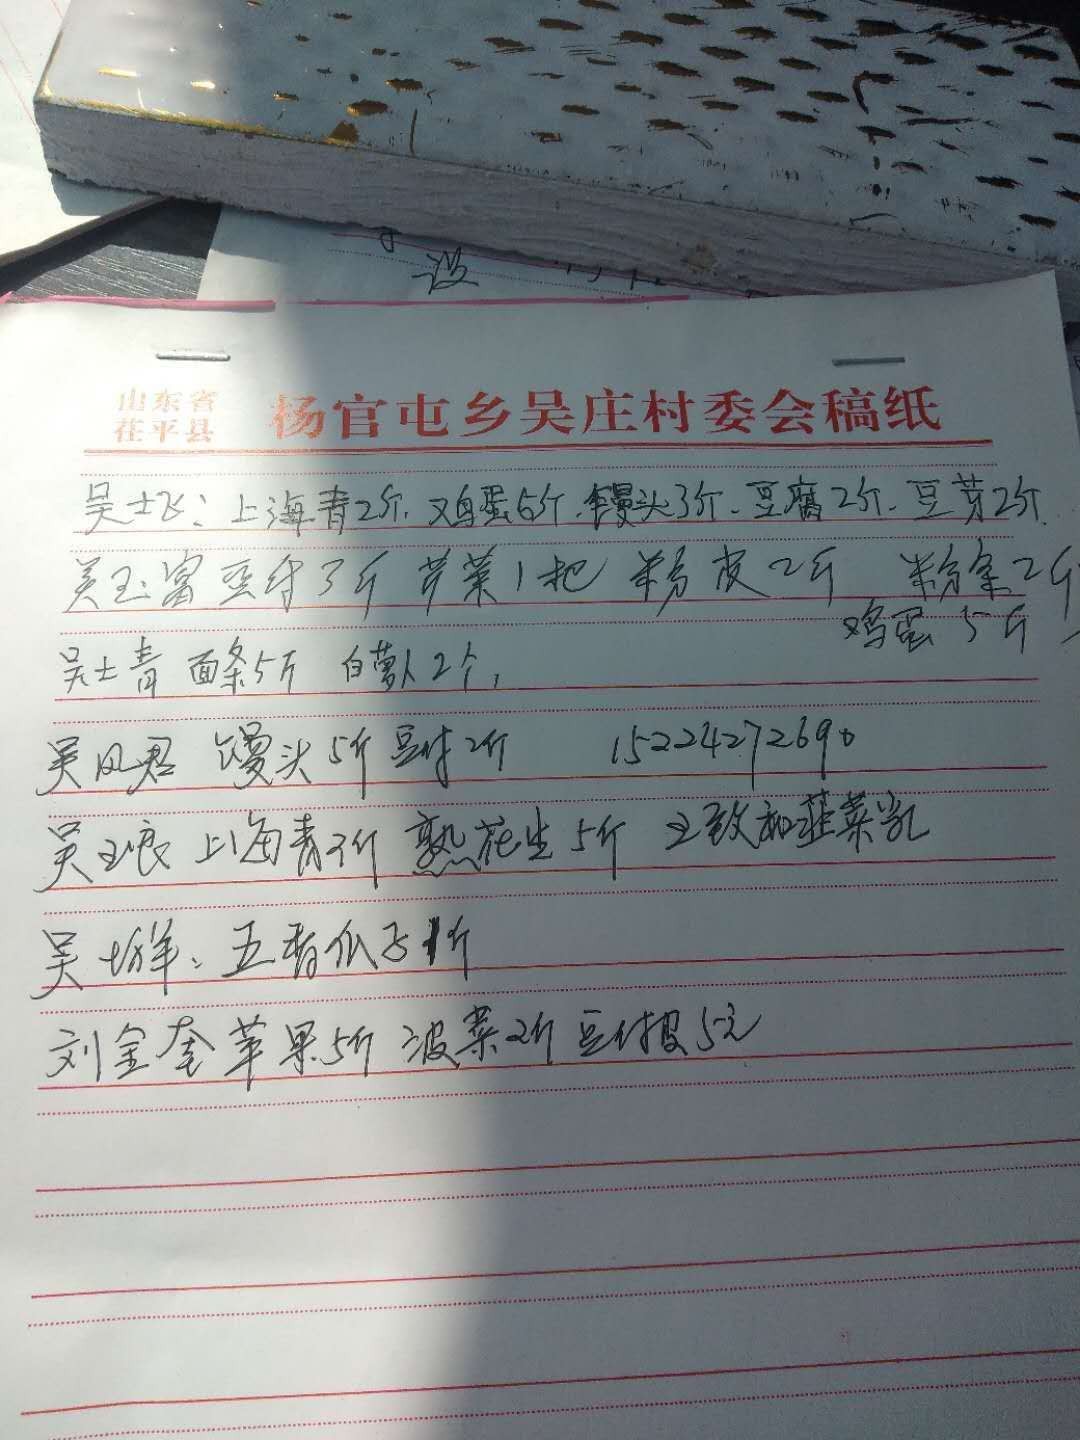 没
山东省
茌平县
杨官屯乡吴庄村委会稿纸
吴士飞：上海青2斤、鸡蛋5斤、馒头3斤、豆腐2斤、豆芽2斤
吴玉富 豆付3斤 芹菜1把 粉皮2斤 粉条2斤
鸡蛋 5斤
吴士青 面条5斤 白萝卜2个,
吴风君 馒头5斤 豆付2斤 15224272690
吴玉良 上海青2斤 熟花生5斤 王致和韭菜乳
吴 、五香瓜子1斤
刘金奎 苹果5斤 波菜2斤 豆付皮5元